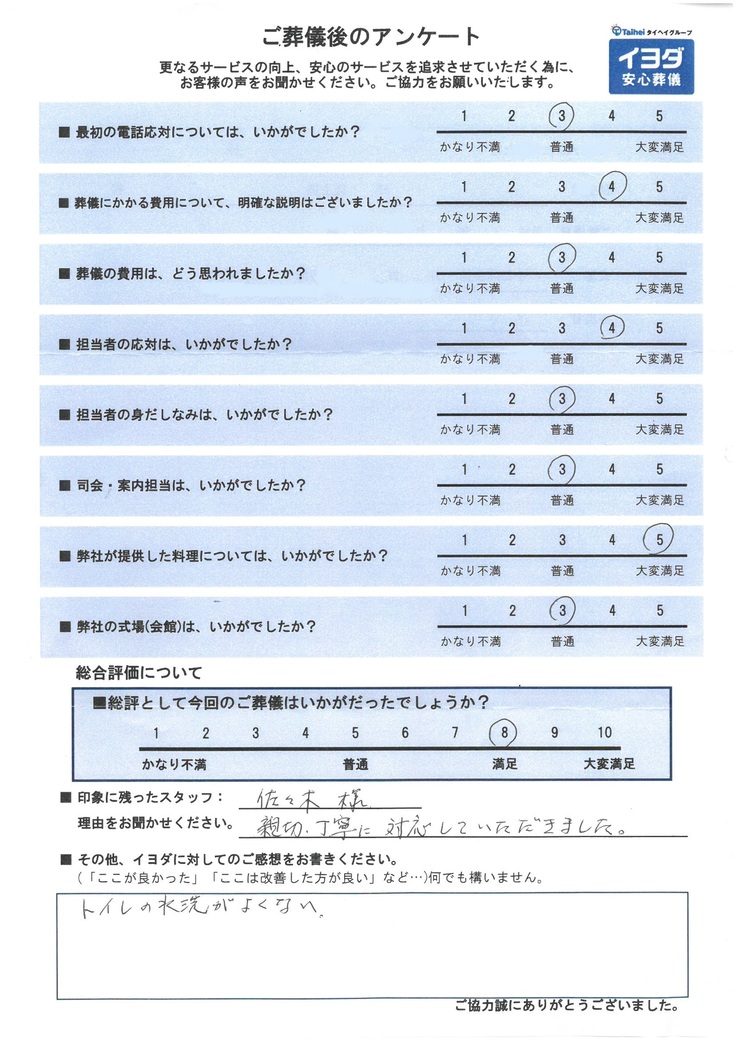 ご葬儀後のアンケート
Taihei タイヘイグループ
イヨダ
安心葬儀
更なるサービスの向上、安心のサービスを追求させていただく為に、
お客様の声をお聞かせください。ご協力をお願いいたします。
■ 最初の電話応対については、いかがでしたか？
1 2 3 4 5
かなり不満 普通 大変満足
■ 葬儀にかかる費用について、明確な説明はございましたか？
1 2 3 4 5
かなり不満 普通 大変満足
■ 葬儀の費用は、どう思われましたか？
1 2 3 4 5
かなり不満 普通 大変満足
■ 担当者の応対は、いかがでしたか？
1 2 3 4 5
かなり不満 普通 大変満足
■ 担当者の身だしなみは、いかがでしたか？
1 2 3 4 5
かなり不満 普通 大変満足
■ 司会・案内担当は、いかがでしたか？
1 2 3 4 5
かなり不満 普通 大変満足
■ 弊社が提供した料理については、いかがでしたか？
1 2 3 4 5
かなり不満 普通 大変満足
■ 弊社の式場(会館)は、いかがでしたか？
1 2 3 4 5
かなり不満 普通 大変満足
総合評価について
■総評として今回のご葬儀はいかがだったでしょうか？
1 2 3 4 5 6 7 8 9 10
かなり不満 普通 満足 大変満足
■ 印象に残ったスタッフ： 佐々木 様
理由をお聞かせください。 親切、丁寧に対応していただきました。
■ その他、イヨダに対してのご感想をお書きください。
(「ここが良かった」「ここは改善した方が良い」など…)何でも構いません。
トイレの水洗がよくない。
ご協力誠にありがとうございました。